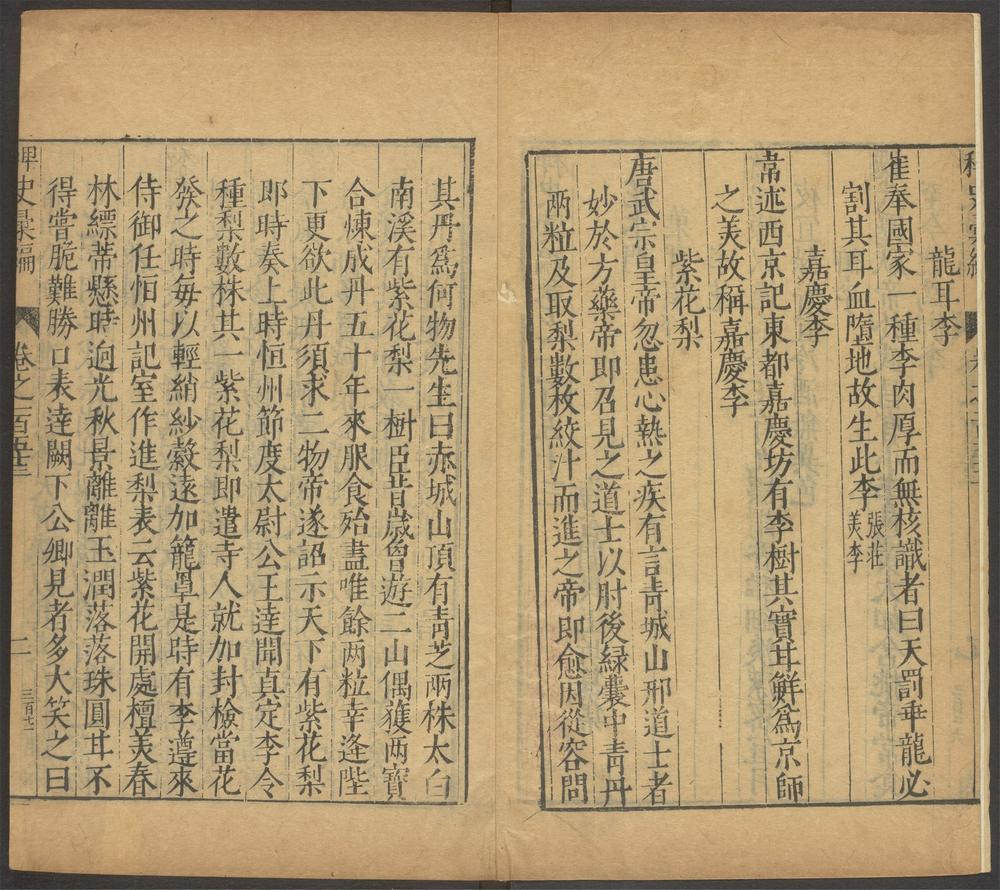 龍耳李
崔奉國家一種李肉厚而無核識者曰天罰乖龍必
割其耳血墮地故生此李張莊美李
嘉慶李
韋述西京記東都嘉慶坊有李樹其實甘鮮為京師
之美故稱嘉慶李
紫花梨
唐武宗皇帝忽患心熱之疾有言青城山邢道士者
妙於方藥帝即召見之道士以肘後緑囊中青丹
两粒及取梨數枚絞汁而進之帝即愈因從容問
其丹為何物先生曰赤城山頂有青芝两株太白
南溪有紫花梨一樹臣昔歲曾遊二山偶獲两寶
合煉成丹五十年來服食殆盡唯餘两粒幸逢陛
下更欲此丹須求二物帝遂詔示天下有紫花梨
即時奏上時恒州節度太尉公王逹聞真定李令
種梨數株其一紫花梨即遣寺人就加封檢當花
發之時每以輕綃紗縠遠加籠罩是時有李遵來
侍御任恒州記室作進梨表云紫花開處擅美春
林縹蒂懸時迥光秋景離離玉潤落落珠圓甘不
得嘗脆難勝口表逹闕下公卿見者多大笑之曰
稗史彙編
卷之一百五十三
二